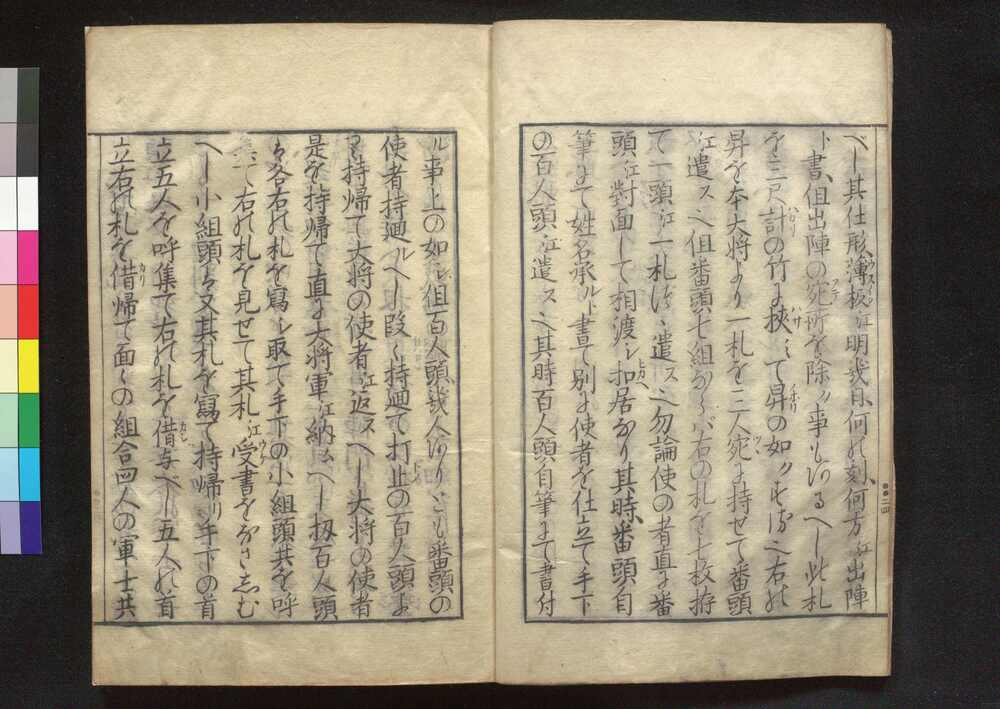 べし其仕形薄板江明幾日何の刻何方江出陣
ト書但出陣の宛所を除ク事も有るべし此札
を三尺計の竹に挾みて昇の如クする也右の
昇を本大将より一札を二人宛に持せて番頭
江遣ス也但番頭七組ならバ右の札を七枚拵
て一頭江一札ずつ遣ス也勿論使の者直に番
頭江對面して相渡シ扣居なり其時番頭自
筆にて姓名承ルト書て別に使者を仕立て手下
の百人頭江遣ス也其時百人頭自筆にて書付
ル事上の如シ但百人頭幾人有りとも番頭の
使者持廻ルべし段々持廻て打止の百人頭よ
り持帰て大将の使者江返スべし大将の使者
是を持帰て直に大将軍江納ムべし扨百人頭
は各右の札を寫シ取て手下の小組頭共を呼
て右の札を見せて其札江受書をなさしむ
べし小組頭は又其札を寫て持帰り手下の首
立五人を呼集て右の札を借与べし五人の首
立右の札を借帰て面々の組合四人の軍士共